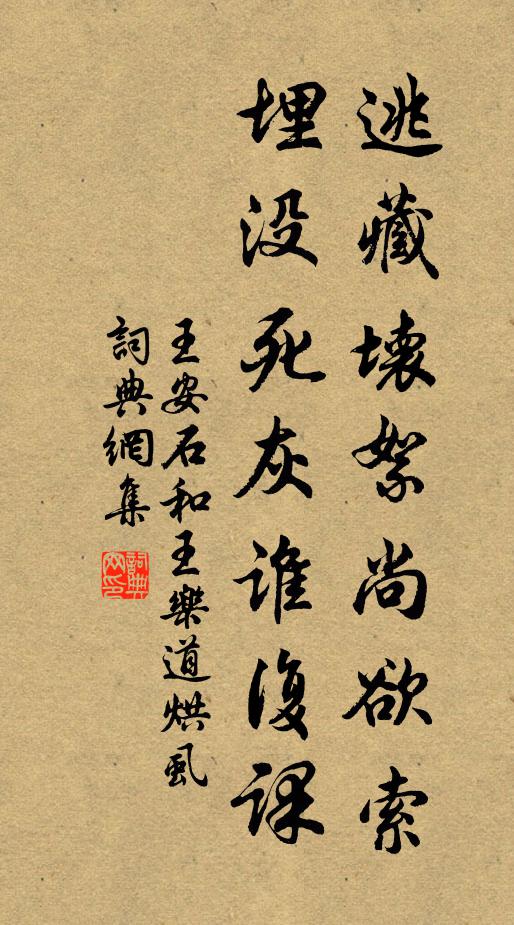 逃藏壞絮尚欲索
埋没死灰誰復課
王安石和王樂道烘虱
詞典網集
詞典网印